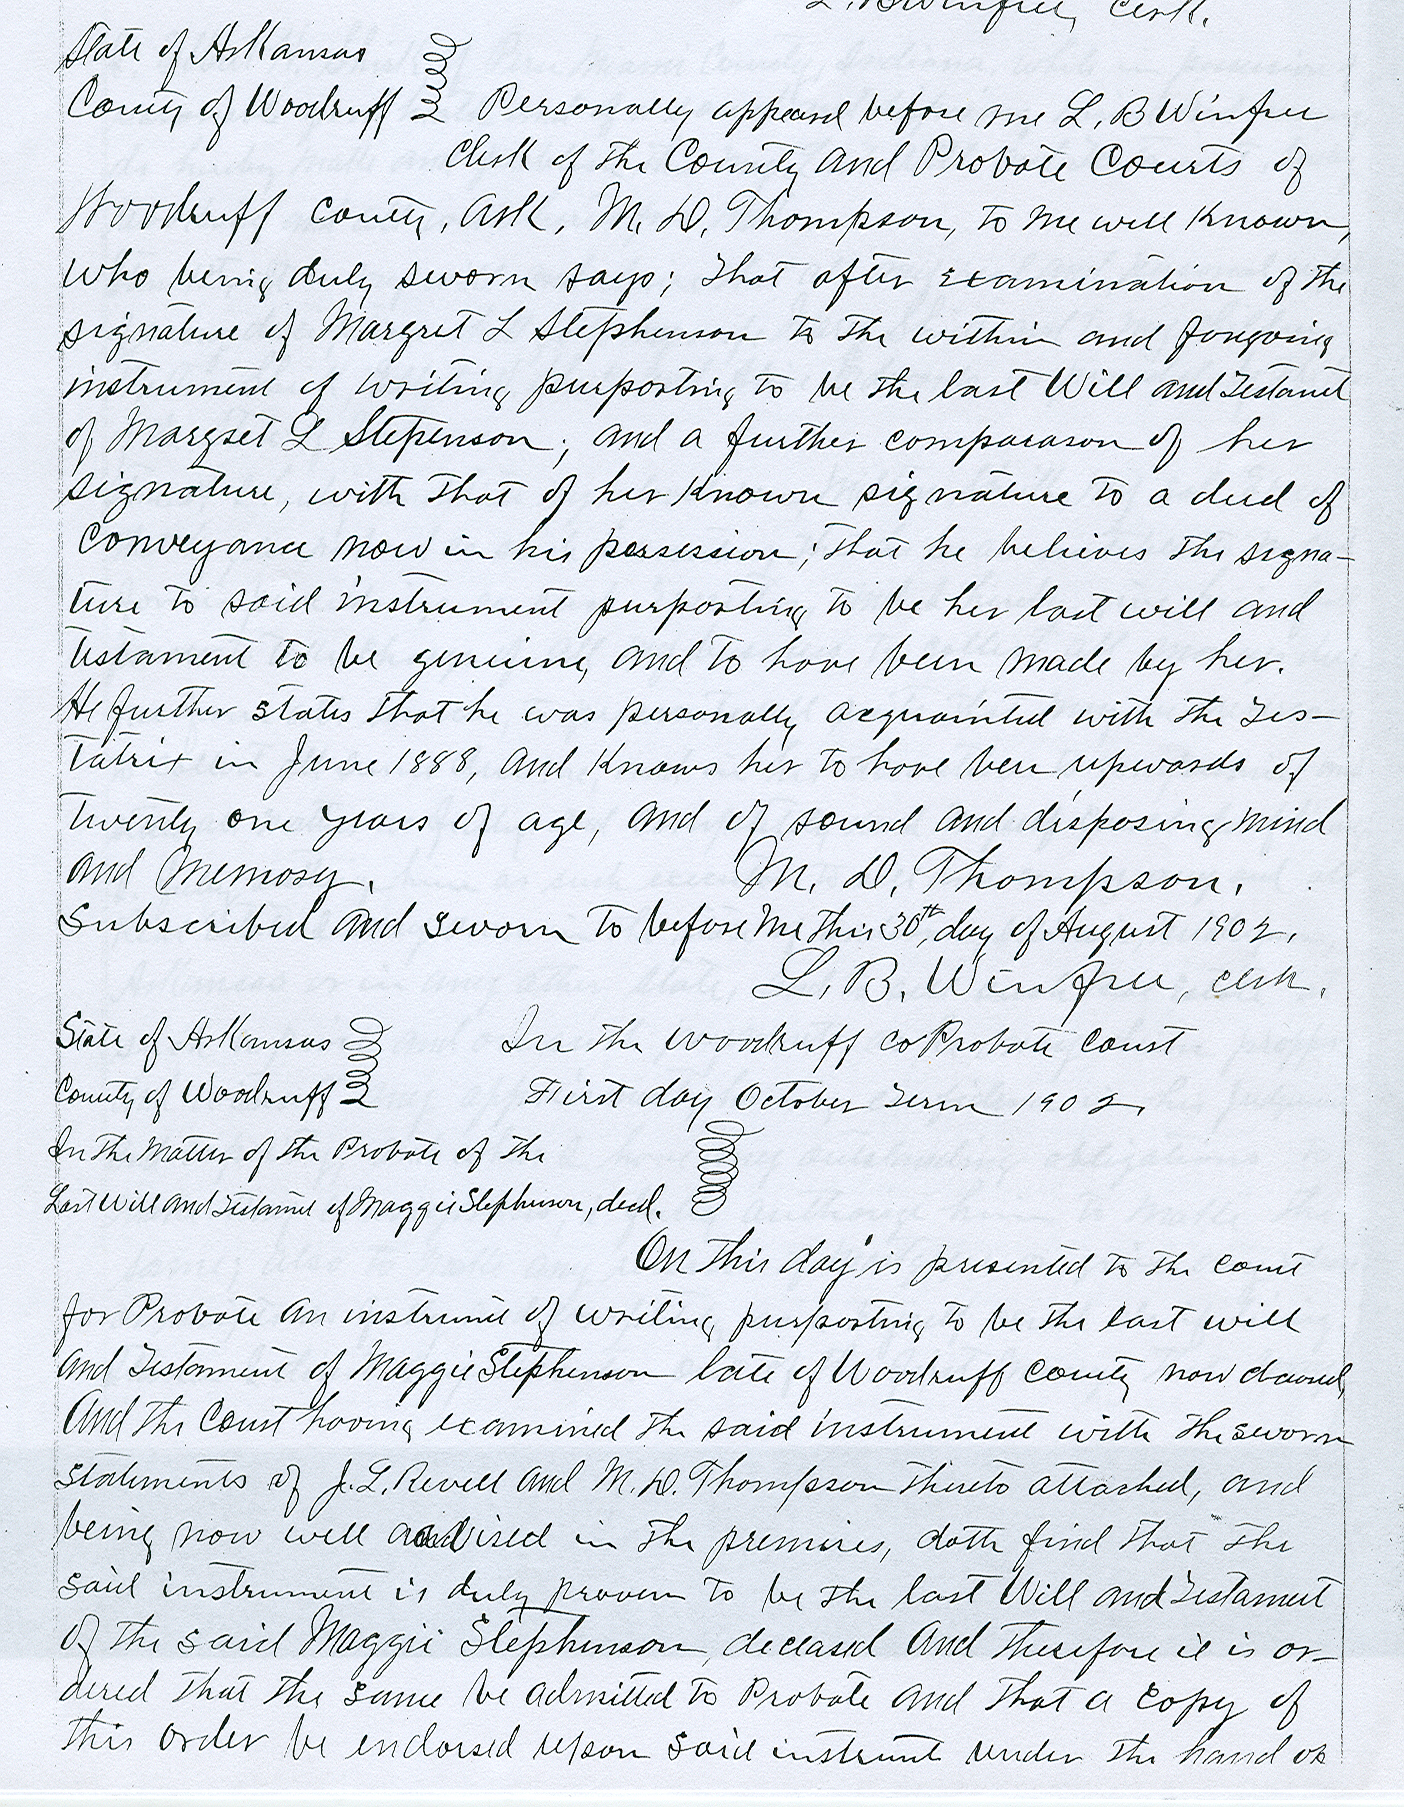 L. B Winfree, Clerk.
State of Arkansas
County of Woodruff Personally appeared before me L. B Winfree
Clerk of the County and Probate Courts of
Woodruff County, Ark, M. D. Thompson, to me well known,
who being duly sworn says; that after examination of the
signature of Margret L Stephenson to the within and foregoing
instrument of writing purporting to be the last Will and Testament
of Margret L Stepenson; and a further comparason of her
signature, with that of her known signature to a deed of
conveyance now in his possession; that he believes the signa-
ture to said instrument purporting to be her last will and
testament to be genuine, and to have been made by her.
He further states that he was personally acquainted with the Tes-
tatrix in June 1888, and knows her to have been upwards of
twenty one years of age, and of sound and disposing mind
and memory. M. D. Thompson.
Subscribed and sworn to before me this 30th, day of August 1902.
L. B. Winfree, clerk.
State of Arkansas In the Woodruff co Probate Court
County of Woodruff First day October Term 1902
In the Matter of the Probate of the
Last Will and Testament of Maggie Stephenson, decd.
On this day is presented to the court
for Probate an instrument of writing purporting to be the last will
and Testament of Maggie Stephenson late of Woodruff County now deceased,
And the Court having examined the said instrument with the sworn
statements of J. L. Revell and M. D. Thompson thereto attached, and
being now well advised in the premises, doth find that the
said instrument is duly proven to be the last Will and Testament
of the said Maggie Stephenson, deceased And therefore it is or-
dered that the same be admitted to Probate and that a copy of
this order be endorsed upon said instrument under the hand of